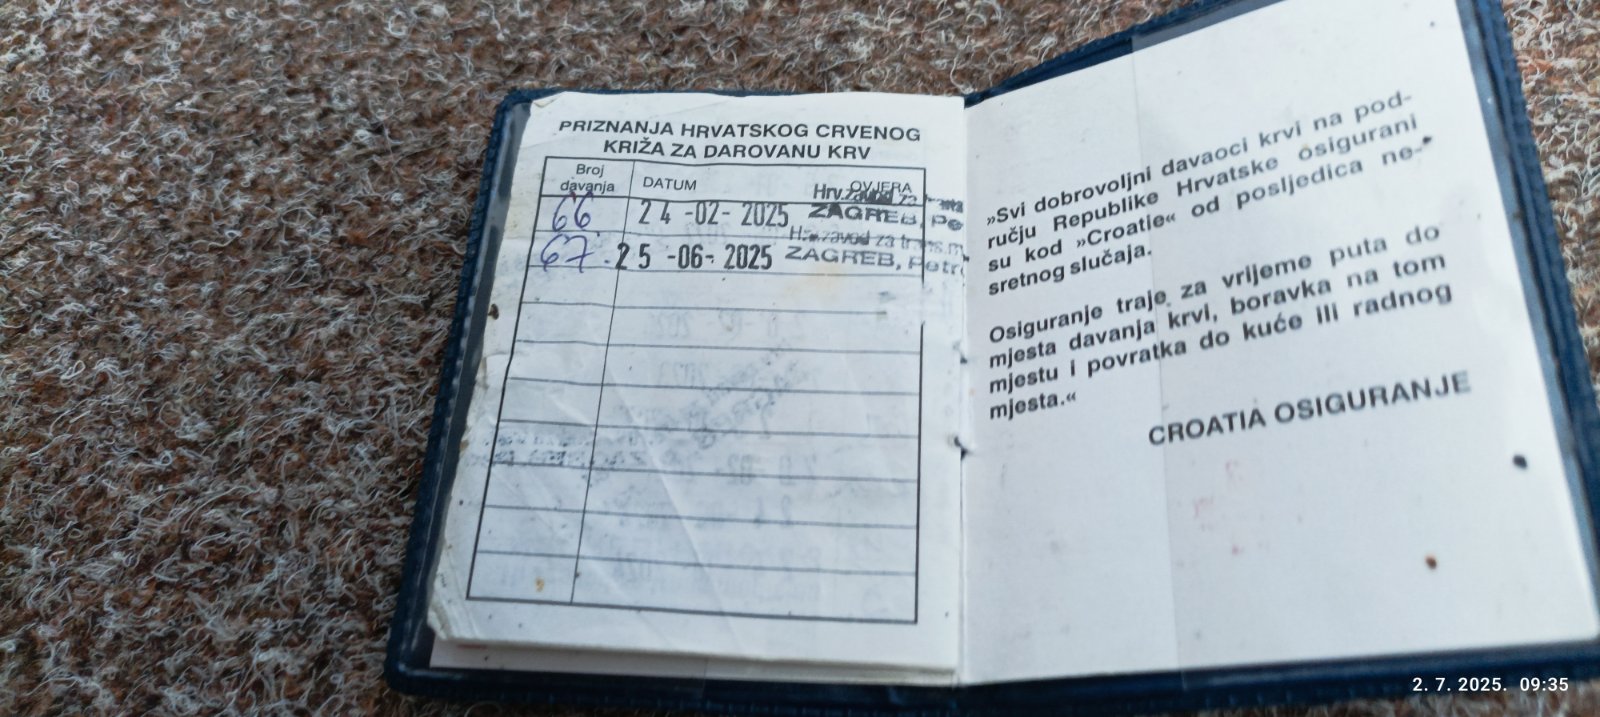 PRIZNANJA HRVATSKOG CRVENOG
KRIŽA ZA DAROVANU KRV
Broj
davanja
DATUM
OVJERA
Hrv. zavod za
66
24 -02- 2025
ZAGREB, Pe
Hr. zavod za trans.m
67.
25 -06- 2025
ZAGREB, Petr
»Svi dobrovoljni davaoci krvi na pod-
ručju Republike Hrvatske osigurani
su kod »Croatie« od posljedica ne-
sretnog slučaja.
Osiguranje traje za vrijeme puta do
mjesta davanja krvi, boravka na tom
mjestu i povratka do kuće ili radnog
mjesta.«
CROATIA OSIGURANJE
2. 7. 2025. 09:35